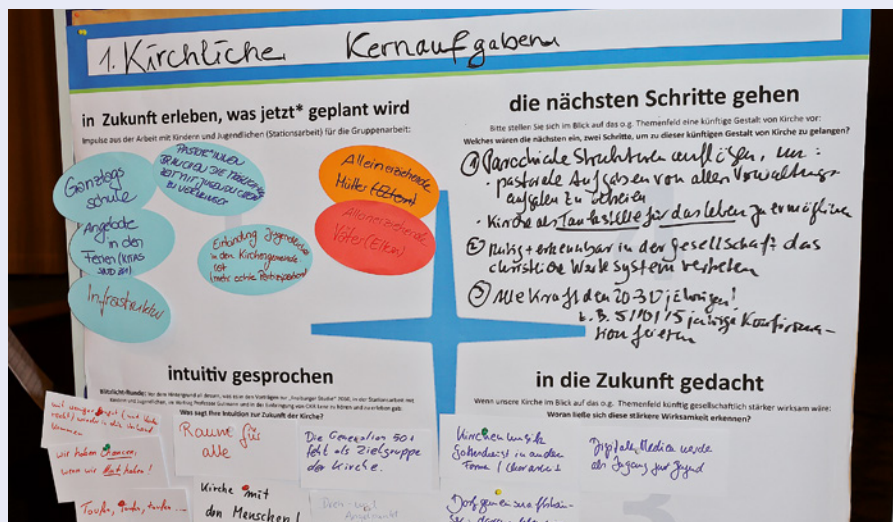 1. Kirchliche Kernaufgaben
in Zukunft erleben, was jetzt* geplant wird
Impulse aus der Arbeit mit Kindern und Jugendlichen (Stationsarbeit) für die Gruppenarbeit:
Ganztags
schule
PASTOR*INNEN
BRAUCHEN DIE
ZEIT MIT JUGENDLICHEN
ZU VERBRINGEN
Angebote
in den
Ferien (KITAS
SIND ZU)
Infrastruktur
Einbindung Jugendlicher
in den Kirchengemeinde
rat
(mehr echte Partizipation)
Alleinerziehende
Mütter (Eltern)
Alleinerziehende
Väter (Eltern)
die nächsten Schritte gehen
Bitte stellen Sie sich im Blick auf das o.g. Themenfeld eine künftige Gestalt von Kirche vor:
Welches wären die nächsten ein, zwei Schritte, um zu dieser künftigen Gestalt von Kirche zu gelangen?
1 Parochiale Strukturen auflösen, um:
· pastorale Aufgaben von allen Verwaltungs-
aufgaben zu
· Kirche als Tankstelle für das Leben zu ermöglichen
2 Mutig + erkennbar in der Gesellschaft das
christliche Wertesystem vertreten
3 Alle Kraft den 20-30 jährigen!
z.B. 5/10/15 jährige Konfirma-
tion feiern
intuitiv gesprochen
Was sagt Ihre Intuition zur Zukunft der Kirche?
mit weniger Angst
wir haben Chancen,
wenn wir Mut haben!
Taufen, taufen, taufen ....
Räume für
alle
Kirche mit
den Menschen!
Die Generation 50+
fehlt als Zielgruppe
der Kirche.
in die Zukunft gedacht
Wenn unsere Kirche im Blick auf das o.g. Themenfeld künftig gesellschaftlich stärker wirksam wäre:
Woran ließe sich diese stärkere Wirksamkeit erkennen?
Kirchenmusik
Gottesdienst in anderer
Form
Digitale Medien werden
als Zugang zur Jugend
Dorfgemeinschaftshäu-